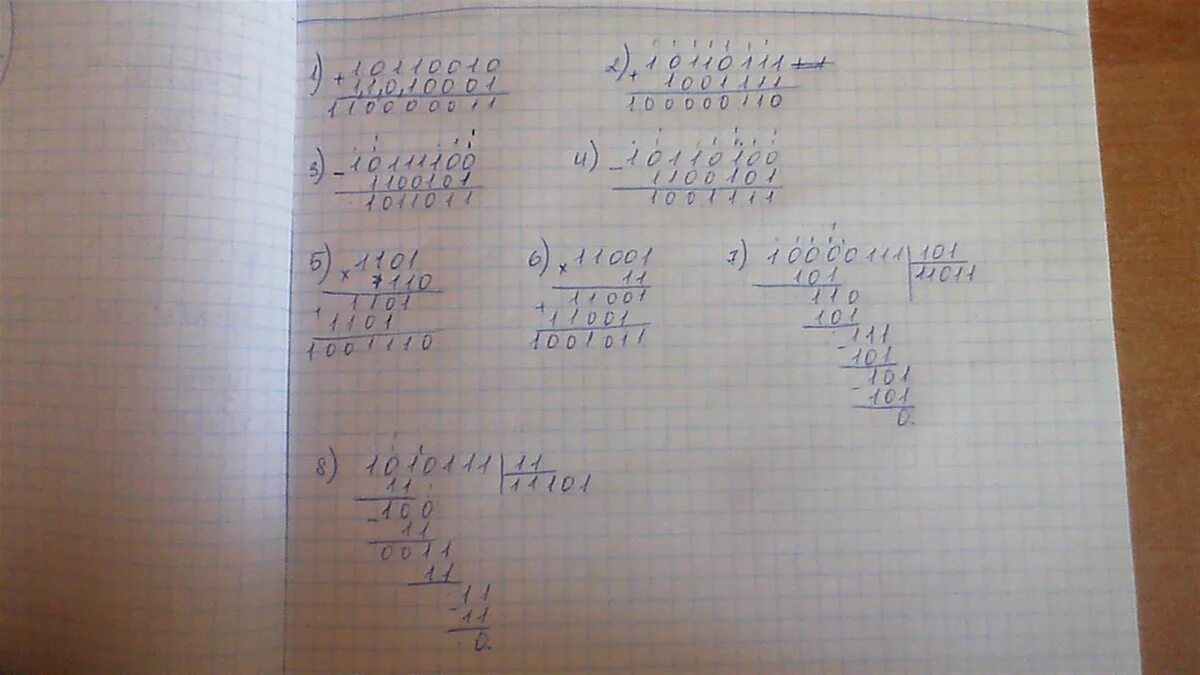 1) + 10110010
11010001
1100000011
2) + 10110111
1001111
100000110
3) - 10111100
1100101
1011011
4) - 10110100
1100101
1001111
5) × 1101
110
+ 1101
1101
1001110
6) × 11001
11
+ 11001
11001
1001011
7) 10000111 | 101
101 | 11011
110
101
- 111
101
- 101
101
0.
8) 1010111 | 11
11 | 11101
- 100
11
0011
11
- 11
11
0.